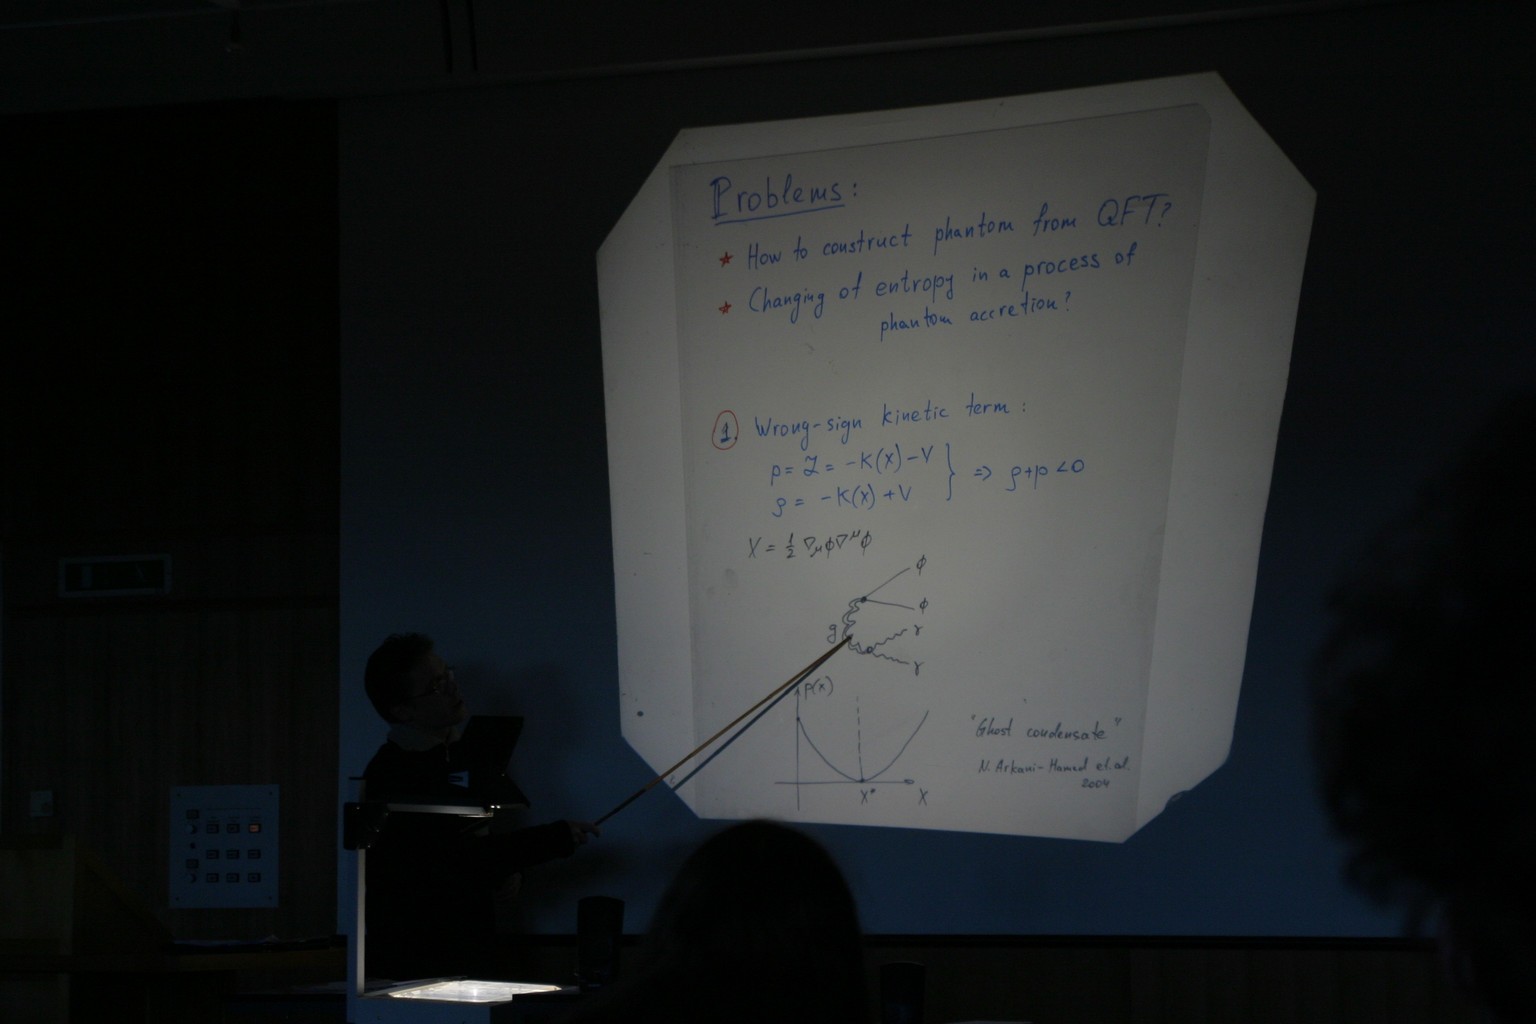 Problems:
★ How to construct phantom from QFT?
★ Changing of entropy in a process of
phantom accretion?
1. Wrong-sign kinetic term:
p = ℒ = -K(X) - V
ρ = -K(X) + V } ⇒ ρ+p <0
X = ½ ∇μϕ∇^μϕ
ϕ
ϕ
g
γ
γ
p(x)
"Ghost condensate"
N. Arkani-Hamed et. al.
2004
X*
X